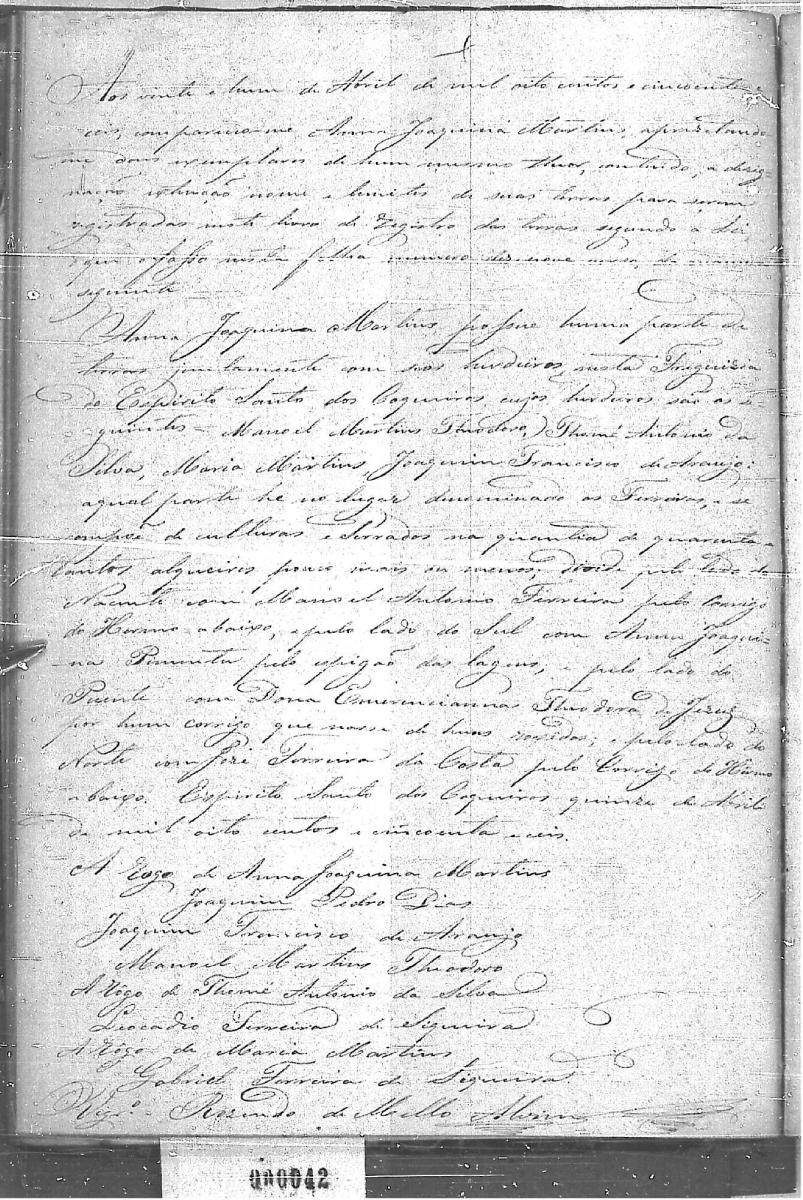 Aos vinte e hum de Abril de mil oito centos e cincoenta e
ceis, compareceo-me Anna Joaquina Martins, aprezetando
me dous exemplares de hum mesmo theor, contendo, a dezig-
nação, extenção nome e limites de suas terras para serem
registradas neste livro de registro das terras segundo a Lei
que o fasso nesta folha numero des nove
seguinte
Anna Joaquina Martins, possue huma parte de
terras juntamente com seos herdeiros, nesta Freguizia
do Espirito Santo dos Coqueiros cujos herdeiros são os se-
guintes - Manoel Martins Theodoro, Thomé Antonio da
Silva, Maria Martins, Joaquim Francisco de Araujo:
aqual parte he no lugar denominado os Terreiras, e se
compoe de culturas e Serrados na quantia de quarenta e
tantos alqueires pouco mais ou menos, divide pelo lado do
Nacente com Manoel Antonio Ferreira pelo corrigo
do Hermo abaixo, e pelo lado do Sul com Anna Joaqui-
na Pimenta pelo espigão das lagens, e pelo lado do
Puente com Dona Emerenciannas Theodora de Jezuz
por hum corrigo que nasse de huas; e pelo lado do
Norte com Joze Ferreira da Costa pelo Corrigo do Hermo
abaixo. Espirito Santo dos Coqueiros quinze de Abril
de mil oito centos e cincoenta e ceis.
A rogo de Anna Joaquina Martins
Joaquim Pedro Dias
Joaquim Francisco de Araujo
Manoel Martins Theodoro
A rogo de Thomé Antonio da Silva
Leocadio Ferreira de Siqueira
A rogo de Maria Martins
Gabriel Ferreira de Siqueira
Vigr.º Rozendo de Mello Alvim
000042